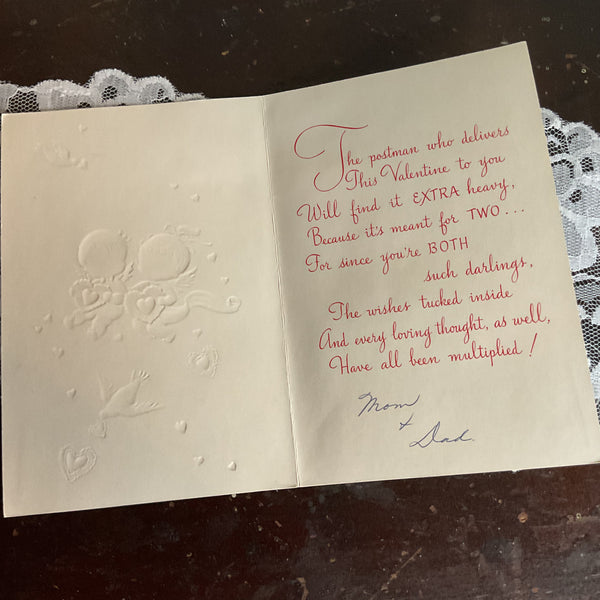 The postman who delivers
This Valentine to you
Will find it EXTRA heavy,
Because it's meant for TWO . . .
For since you're BOTH
such darlings,
The wishes tucked inside
And every loving thought, as well,
Have all been multiplied!
Mom
+
Dad.